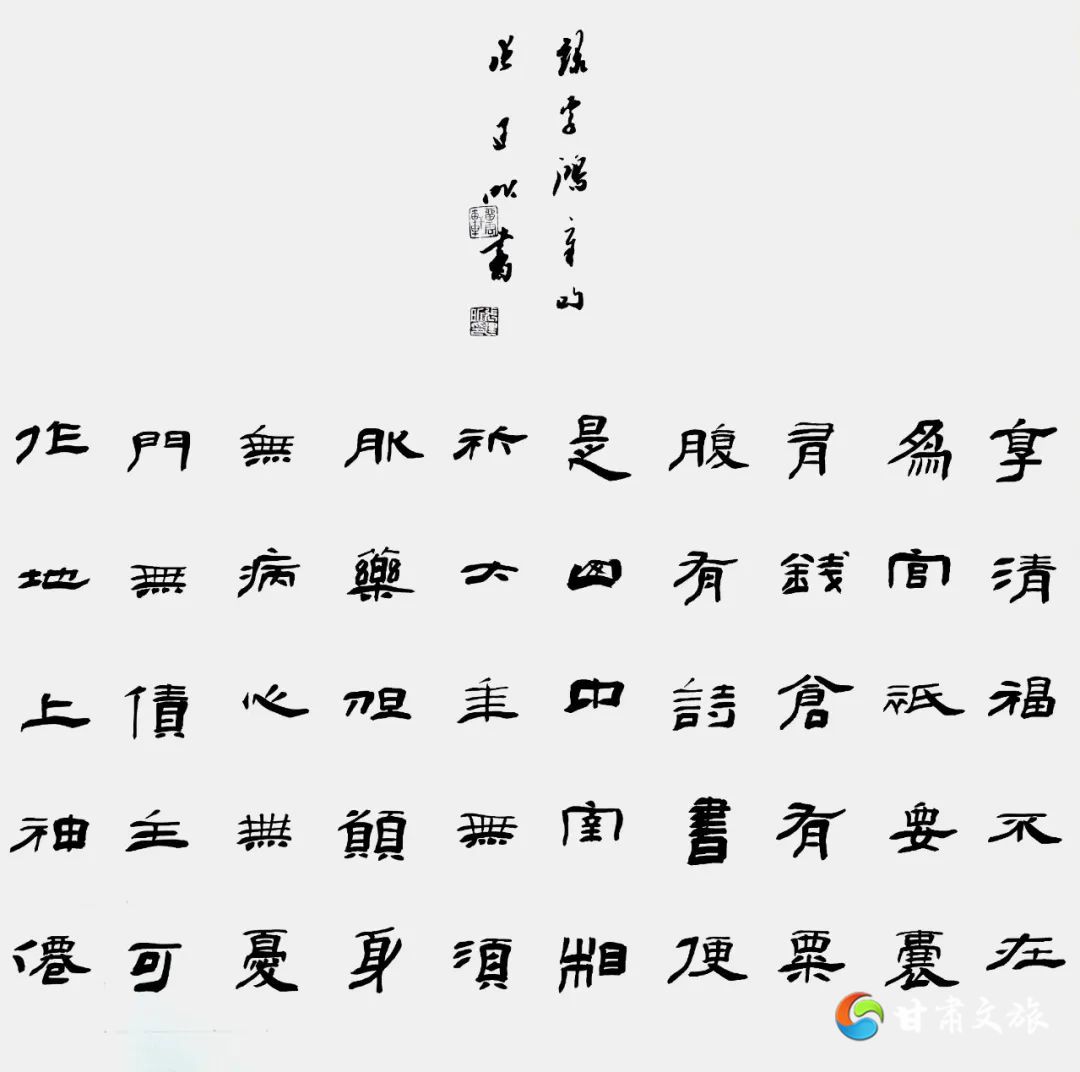 享清福不在
為官祇要囊
有錢倉有粟
腹有詩書便
是山中宰相
祈大年無須
服藥但願身
無病心無憂
門無債主可
作地上神僊
錄李鴻章句
書
甘肃文旅